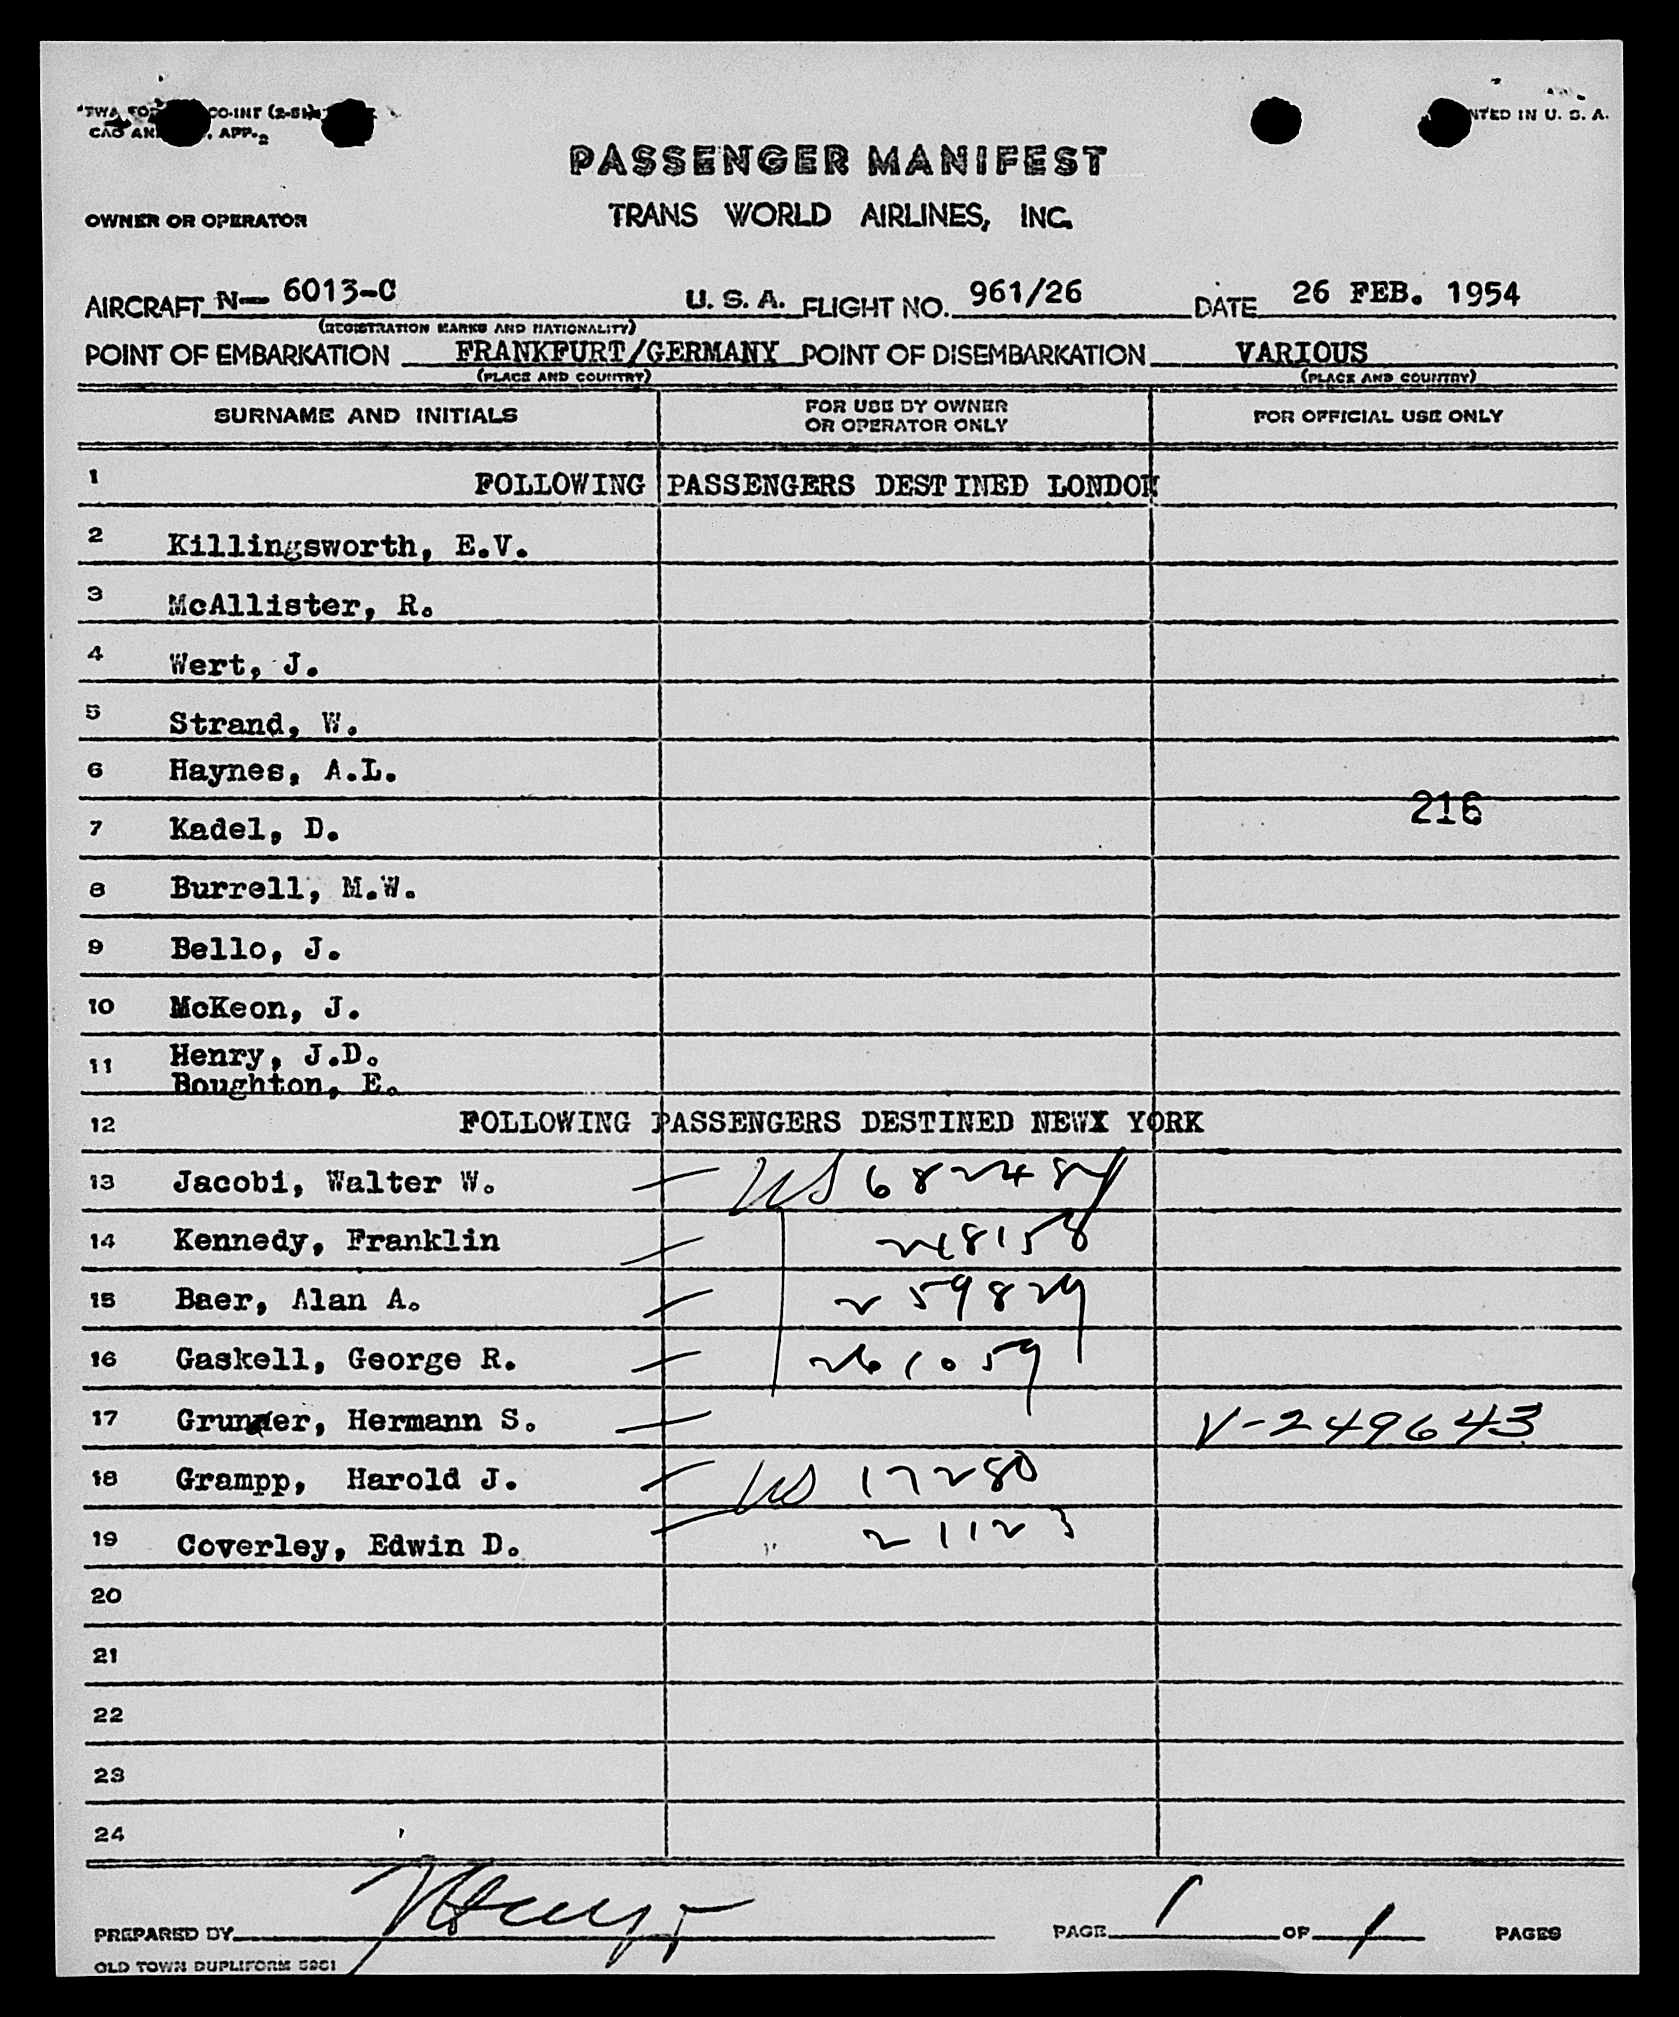 PASSENGER MANIFEST
PRINTED IN U. S. A.
CAO AN , APP. 2
OWNER OR OPERATOR TRANS WORLD AIRLINES, INC.
AIRCRAFT N— 6013-C U. S. A. FLIGHT NO. 961/26 DATE 26 FEB. 1954
(REGISTRATION MARKS AND NATIONALITY)
POINT OF EMBARKATION FRANKFURT/GERMANY POINT OF DISEMBARKATION VARIOUS
(PLACE AND COUNTRY) (PLACE AND COUNTRY)
SURNAME AND INITIALS FOR USE BY OWNER OR OPERATOR ONLY FOR OFFICIAL USE ONLY
1 FOLLOWING PASSENGERS DESTINED LONDON
2 Killingsworth, E.V.
3 McAllister, R.
4 Wert, J.
5 Strand, W.
6 Haynes, A.L.
216
7 Kadel, D.
8 Burrell, M.W.
9 Bello, J.
10 McKeon, J.
11 Henry, J.D.
Boughton, E.
12 FOLLOWING PASSENGERS DESTINED NEWX YORK
13 Jacobi, Walter W. — US 682484
14 Kennedy, Franklin — 248158
15 Baer, Alan A. — 259829
16 Gaskell, George R. — 261059
17 Gruner, Hermann S. — V-249643
18 Grampp, Harold J. — US 17280
19 Coverley, Edwin D. — " 21123
20
21
22
23
24
PREPARED BY PAGE 1 OF 1 PAGES
OLD TOWN DUPLIFORM 5951